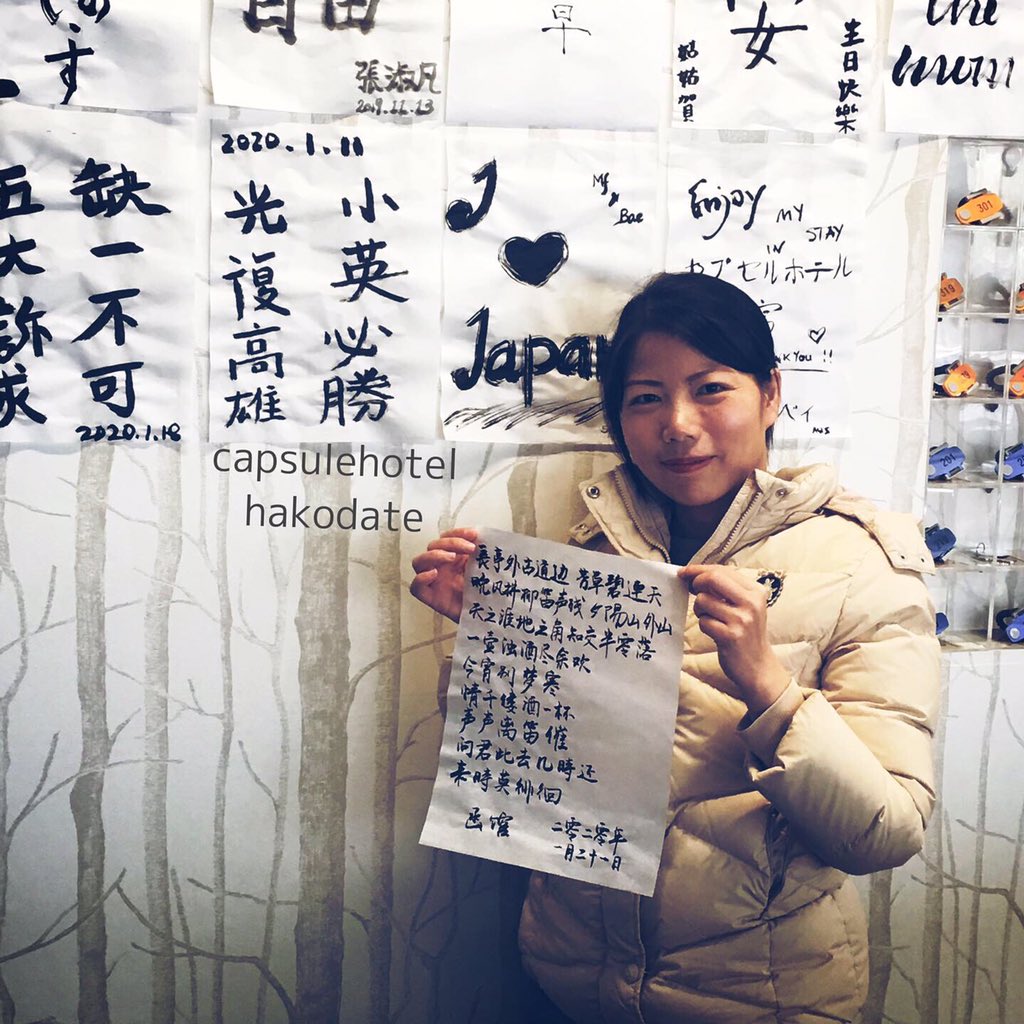 自由
張淑凡
2019.11.13
早
安
姑姑賀
生日快樂
the
五大訴求
缺一不可
2020.1.18
2020.1.11
小英必勝
光復高雄
J
Mf x Bae
Japan
Enjoy
MY
STAY
IN
カプセルホテル
YOU !!
ベイ
capsulehotel
hakodate
301
319
201
長亭外古道边 芳草碧連天
晚风拂柳笛声残 夕陽山外山
天之涯地之角知交半零落
一壶浊酒尽余欢
今宵别梦寒
情千缕酒一杯
声声离笛催
问君此去几時还
来時莫徘徊
二零二零年
一月二十一日